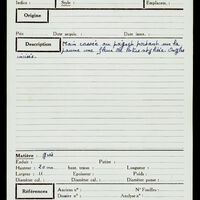 Indice : Style : Emplacem. :
Origine
Prix Date acquis. : Date inv. :
Description Main cassée au poignet portant sur la
paume une fleur de lotus stylisée. Ongles
incisés.
Matière : grès
Enduit : Patine :
Hauteur : 20 cms. base : Longueur :
Largeur : 11 Epaisseur : Poids :
Diamètre col. : Diamètre panse :
Références Ancien n° : N° Fouilles :
Dossier n° : Analyse n° :